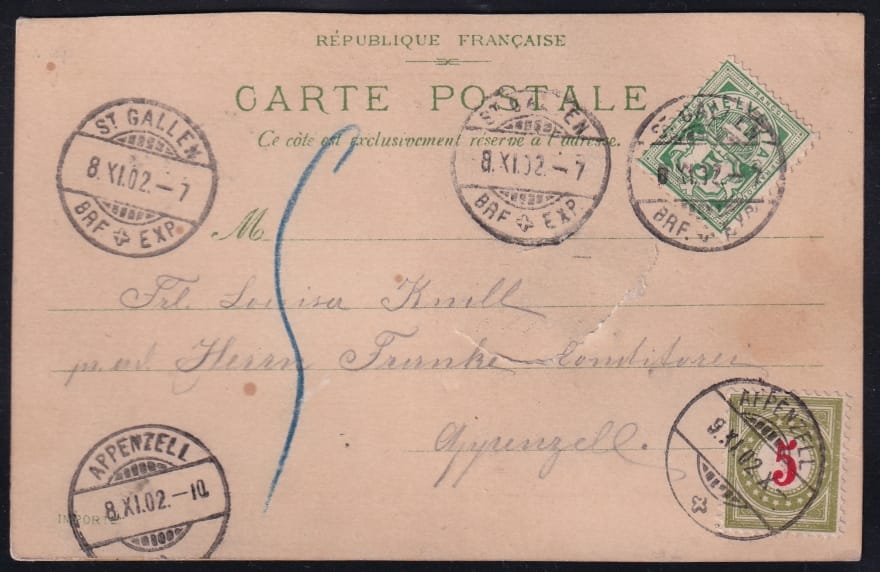 RÉPUBLIQUE FRANÇAISE
CARTE POSTALE
Ce côté est exclusivement réservé à l'adresse.
ST GALLEN
8.XI.02.-7
BRF EXP.
ST GALLEN
8.XI.02.-7
BRF EXP.
ST GALLEN
8.XI.02.-7
BRF. EXP.
FRANCO
5
M
Frl. Louisa Knill
Herrn Franke Conditorei
Appenzell.
APPENZELL
8.XI.02.-10.
APPENZELL
9.XI.02.X
5
IMPORTÉ